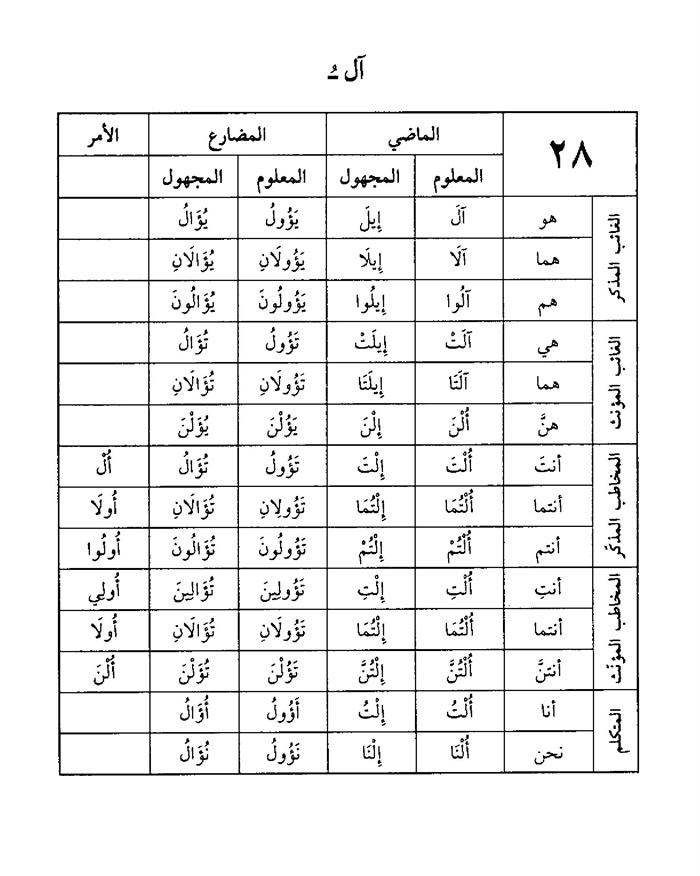 آل ـُ
٢٨ الماضي المضارع الأمر
المعلوم المجهول المعلوم المجهول
الغائب المذكر
هو آلَ إِيلَ يَؤُولُ يُؤَالُ
هما آلَا إِيلَا يَؤُولَانِ يُؤَالَانِ
هم آلُوا إِيلُوا يَؤُولُونَ يُؤَالُونَ
الغائب المؤنث
هي آلَتْ إِيلَتْ تَؤُولُ تُؤَالُ
هما آلَتَا إِيلَتَا تَؤُولَانِ تُؤَالَانِ
هنَّ أُلْنَ إِلْنَ يَؤُلْنَ يُؤَلْنَ
المخاطب المذكّر
أنتَ أُلْتَ إِلْتَ تَؤُولُ تُؤَالُ أُلْ
أنتما أُلْتُمَا إِلْتُمَا تَؤُولَانِ تُؤَالَانِ أُولَا
أنتم أُلْتُمْ إِلْتُمْ تَؤُولُونَ تُؤَالُونَ أُولُوا
المخاطب المؤنّث
أنتِ أُلْتِ إِلْتِ تَؤُولِينَ تُؤَالِينَ أُولِي
أنتما أُلْتُمَا إِلْتُمَا تَؤُولَانِ تُؤَالَانِ أُولَا
أنتنَّ أُلْتُنَّ إِلْتُنَّ تَؤُلْنَ تُؤَلْنَ أُلْنَ
المتكلم
أنا أُلْتُ إِلْتُ أَؤُولُ أُؤَالُ
نحن أُلْنَا إِلْنَا نَؤُولُ نُؤَالُ